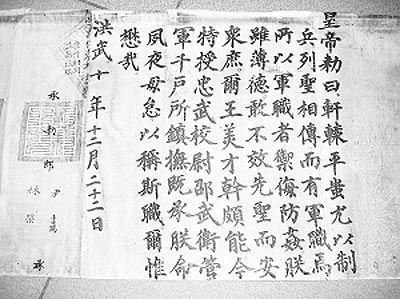 皇帝勅曰軒轅平蚩尤以制
兵列聖相傳而有軍職焉
所以軍職者禦侮防姦朕
雖薄德敢不效先聖而安
衆庶爾王美才幹頗能今
特授忠武校尉邵武衛管
軍千戶所鎮撫既承朕命
夙夜毋怠以稱斯職爾惟
懋哉
洪武十年十二月二十二日
承勅郎
承